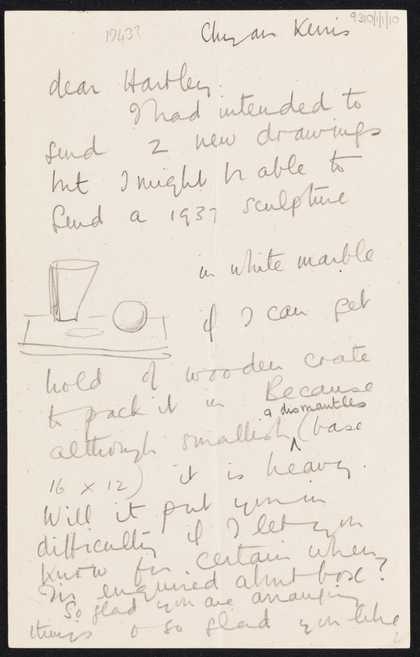 1943?
9310/1/1/10
Chy an Kerris
dear Hartley.
I had intended to
send 2 new drawings
but I might be able to
send a 1937 sculpture
in white marble
if I can get
hold of wooden crate
to pack it in Because
& dismantles
although smallish (base
16 x 12) it is heavy.
Will it put you in
difficulty if I let you
know for certain when
I've enquired about box?
So glad you are arranging
things & so glad you like